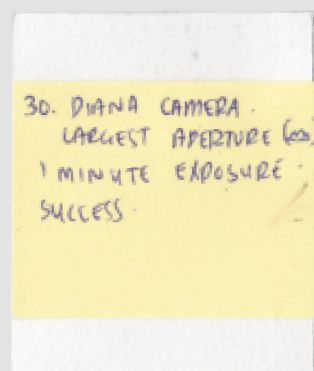 30. DIANA CAMERA.
LARGEST APERTURE
1 MINUTE EXPOSURE.
SUCCESS.